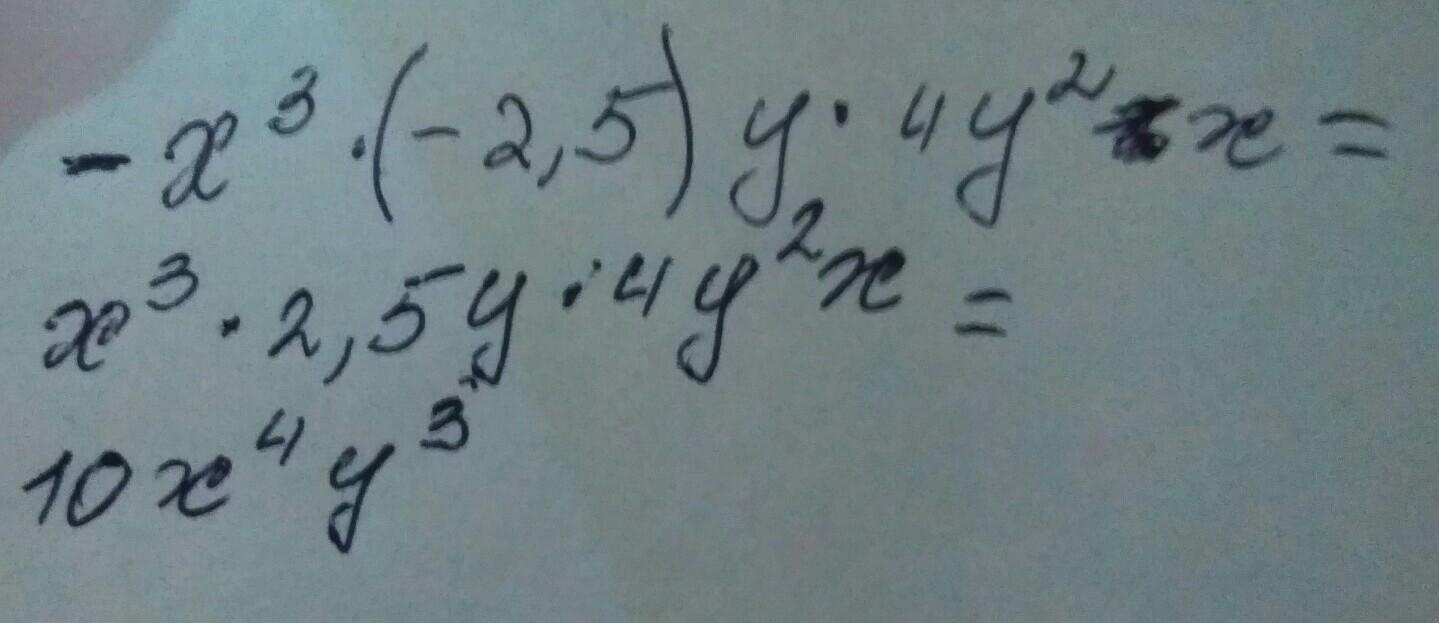 -x³·(-2,5)y·4y²x=
x³·2,5y·4y²x=
10x⁴y³